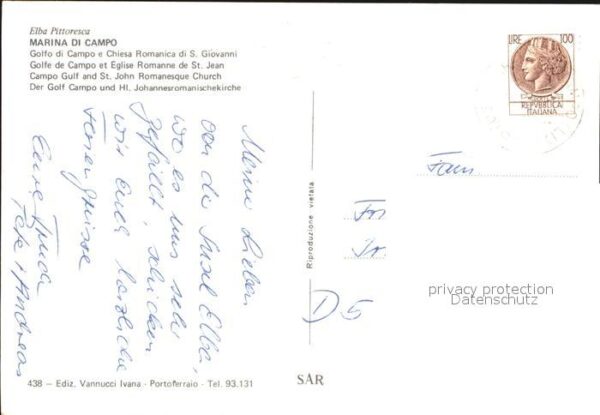 Elba Pittoresca
MARINA DI CAMPO
Golfo di Campo e Chiesa Romanica di S. Giovanni
Golfe de Campo et Eglise Romanne de St. Jean
Campo Gulf and St. John Romanesque Church
Der Golf Campo und Hl. Johannesromanischekirche
LIRE 100
REPVBBLICA
ITALIANA
Meine Lieben
von der Insel Elba,
wo es uns sehr
gefällt, schicken
wir Euch herzliche
Feriengrüsse
Eure
+ Andreas
Riproduzione vietata
Fam
D 5
privacy protection
Datenschutz
438 - Ediz. Vannucci Ivana - Portoferraio - Tel. 93.131
SAR